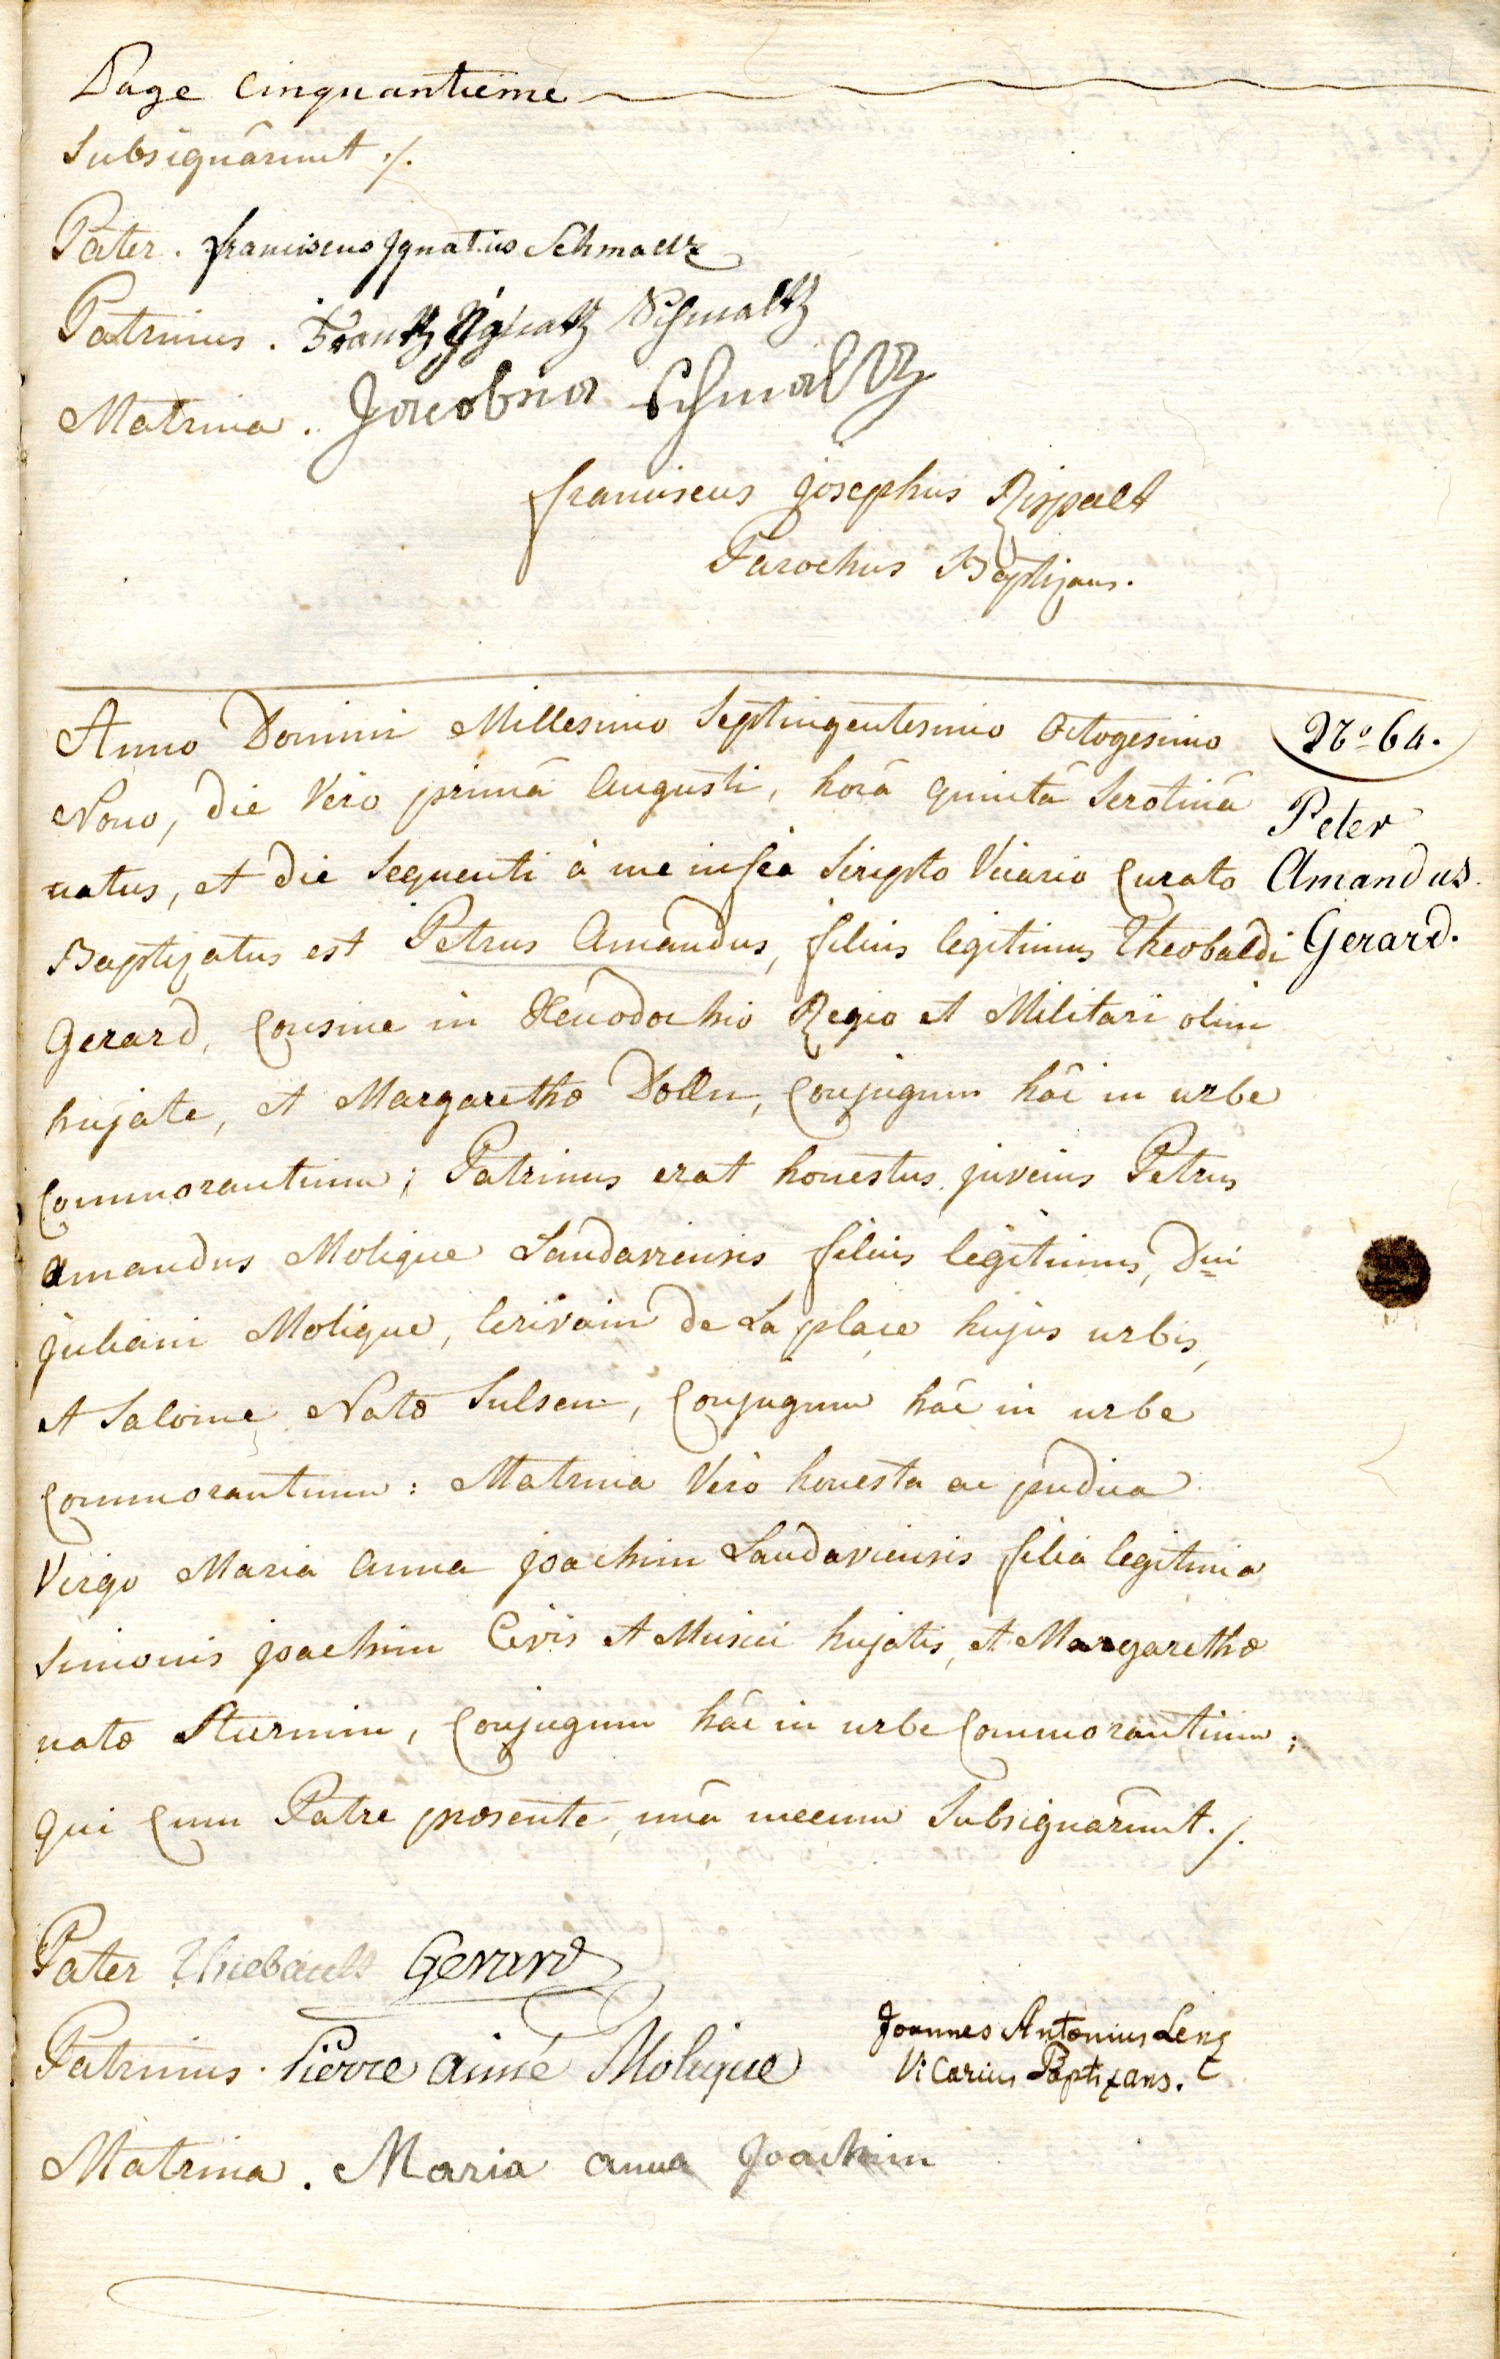 Page Cinquantieme
Subsignârunt ./.
Pater. franciscus Ignatius Schmaltz
Patrinus. Frantz Ignatz Schmaltz
Matrina. Jacobina Schmaltz
franciscus josephus
Parochus Baptizans.
Anno Domini Millesimo Septingentesimo Octogesimo
Nono, die Vero primâ Augusti, horâ quintâ Serotinâ
natus, et die Sequenti à me infra Scripto Vicario Curato
Baptizatus est Petrus Amandus, filius legitimus Theobaldi
Gerard, Cousine in Xenodochio Regio et Militari olim
hujate, et Margarethæ Dollin, Conjugum hâc in urbe
Commorantium; Patrinus erat honestus juvenis Petrus
Amandus Molique Landaviensis filius legitimus, Dni
juliani Molique, Ecrivain de La place hujus urbis,
et Salome Natæ Sulsen, Conjugum hâc in urbe
Commorantium: Matrina Verò honesta ac pudica
Virgo Maria Anna joachim Landaviensis filia legitima
Simonis joachim Civis et Musici hujatis, et Margarethæ
natæ Sturmin, Conjugum hâc in urbe Commorantium;
qui Cum Patre præsente, unâ mecum Subsignârunt ./.
Nº 64.
Peter
Amandus
Gerard.
Pater Thiebault Gerard
Patrinus. Pierre aimé Molique
Matrina. Maria anna Joachim
Joannes Antonius Lenz
Vicarius Baptizans.